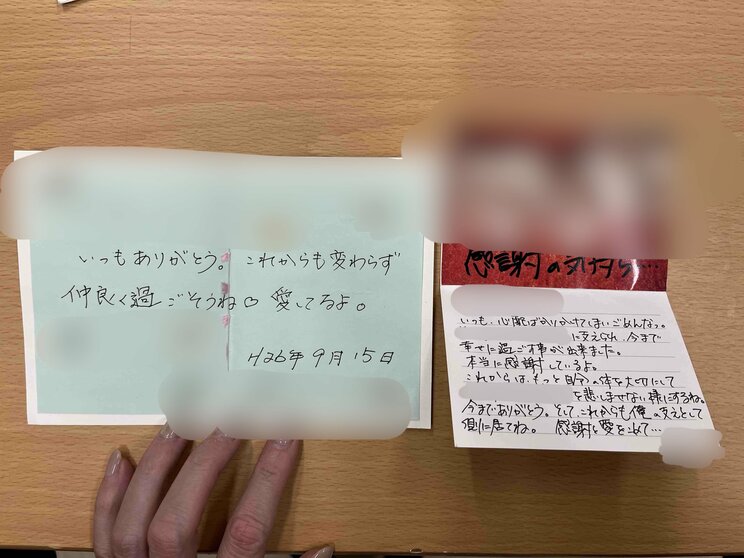 いつもありがとう。これからも変わらず
仲良く過ごそうね♡ 愛してるよ。
H26年9月15日
感謝の気持ち…
いつも、心配ばかりかけてしまいごめんなっ。
に支えられ、今まで
幸せに過ごす事が出来ました。
本当に感謝しているよ。
これからは、もっと自分の体を大切にして
を悲しませない様にするね。
今までありがとう。そして、これからも俺の支えとして
側に居てね。 感謝と愛を込めて…